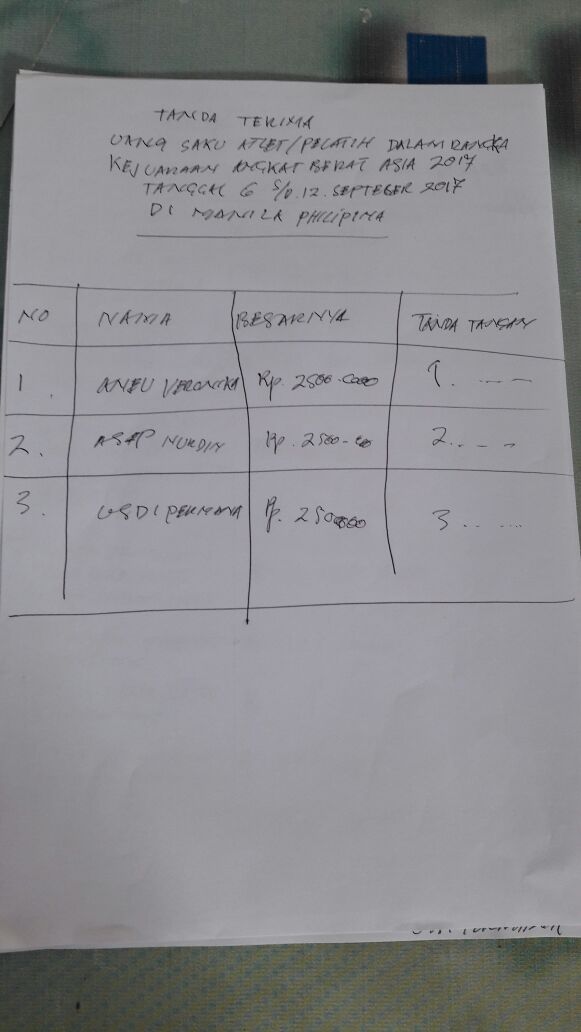 TANDA TERIMA
UANG SAKU ATLET/PELATIH DALAM RANGKA
KEJUARAAN ANGKAT BERAT ASIA 2017
TANGGAL 6 S/D.12. SEPTEBER 2017
DI MANILA PHILIPINA
NO NAMA BESARNYA TANDA TANGAN
1. ANEU VERONIKA Rp. 2500.000 1. ....
2. ASEP NURDIN Rp. 2500.00 2. ...
3. USDI PERMANA Rp. 2500000 3. .....